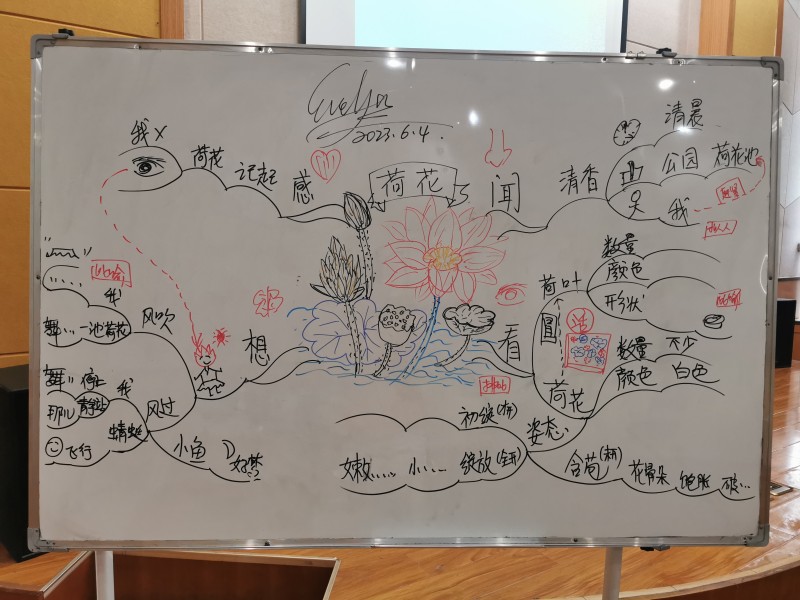 Evelyn
2023.6.4.
荷花
我 X
荷花
记起
感
闻
清香
清晨
公园
荷花池
我
数量
颜色
形状
荷叶
圆
活
看
荷花
数量
不少
颜色
白色
姿态
初绽(开)
绽放(全开)
小……
嫩……
含苞(未开)
花骨朵
饱胀
破…
想
风吹
我
一池荷花
舞…
风过
我
停止
舞…
静止
那儿
蜻蜓
飞行
小鱼
好梦